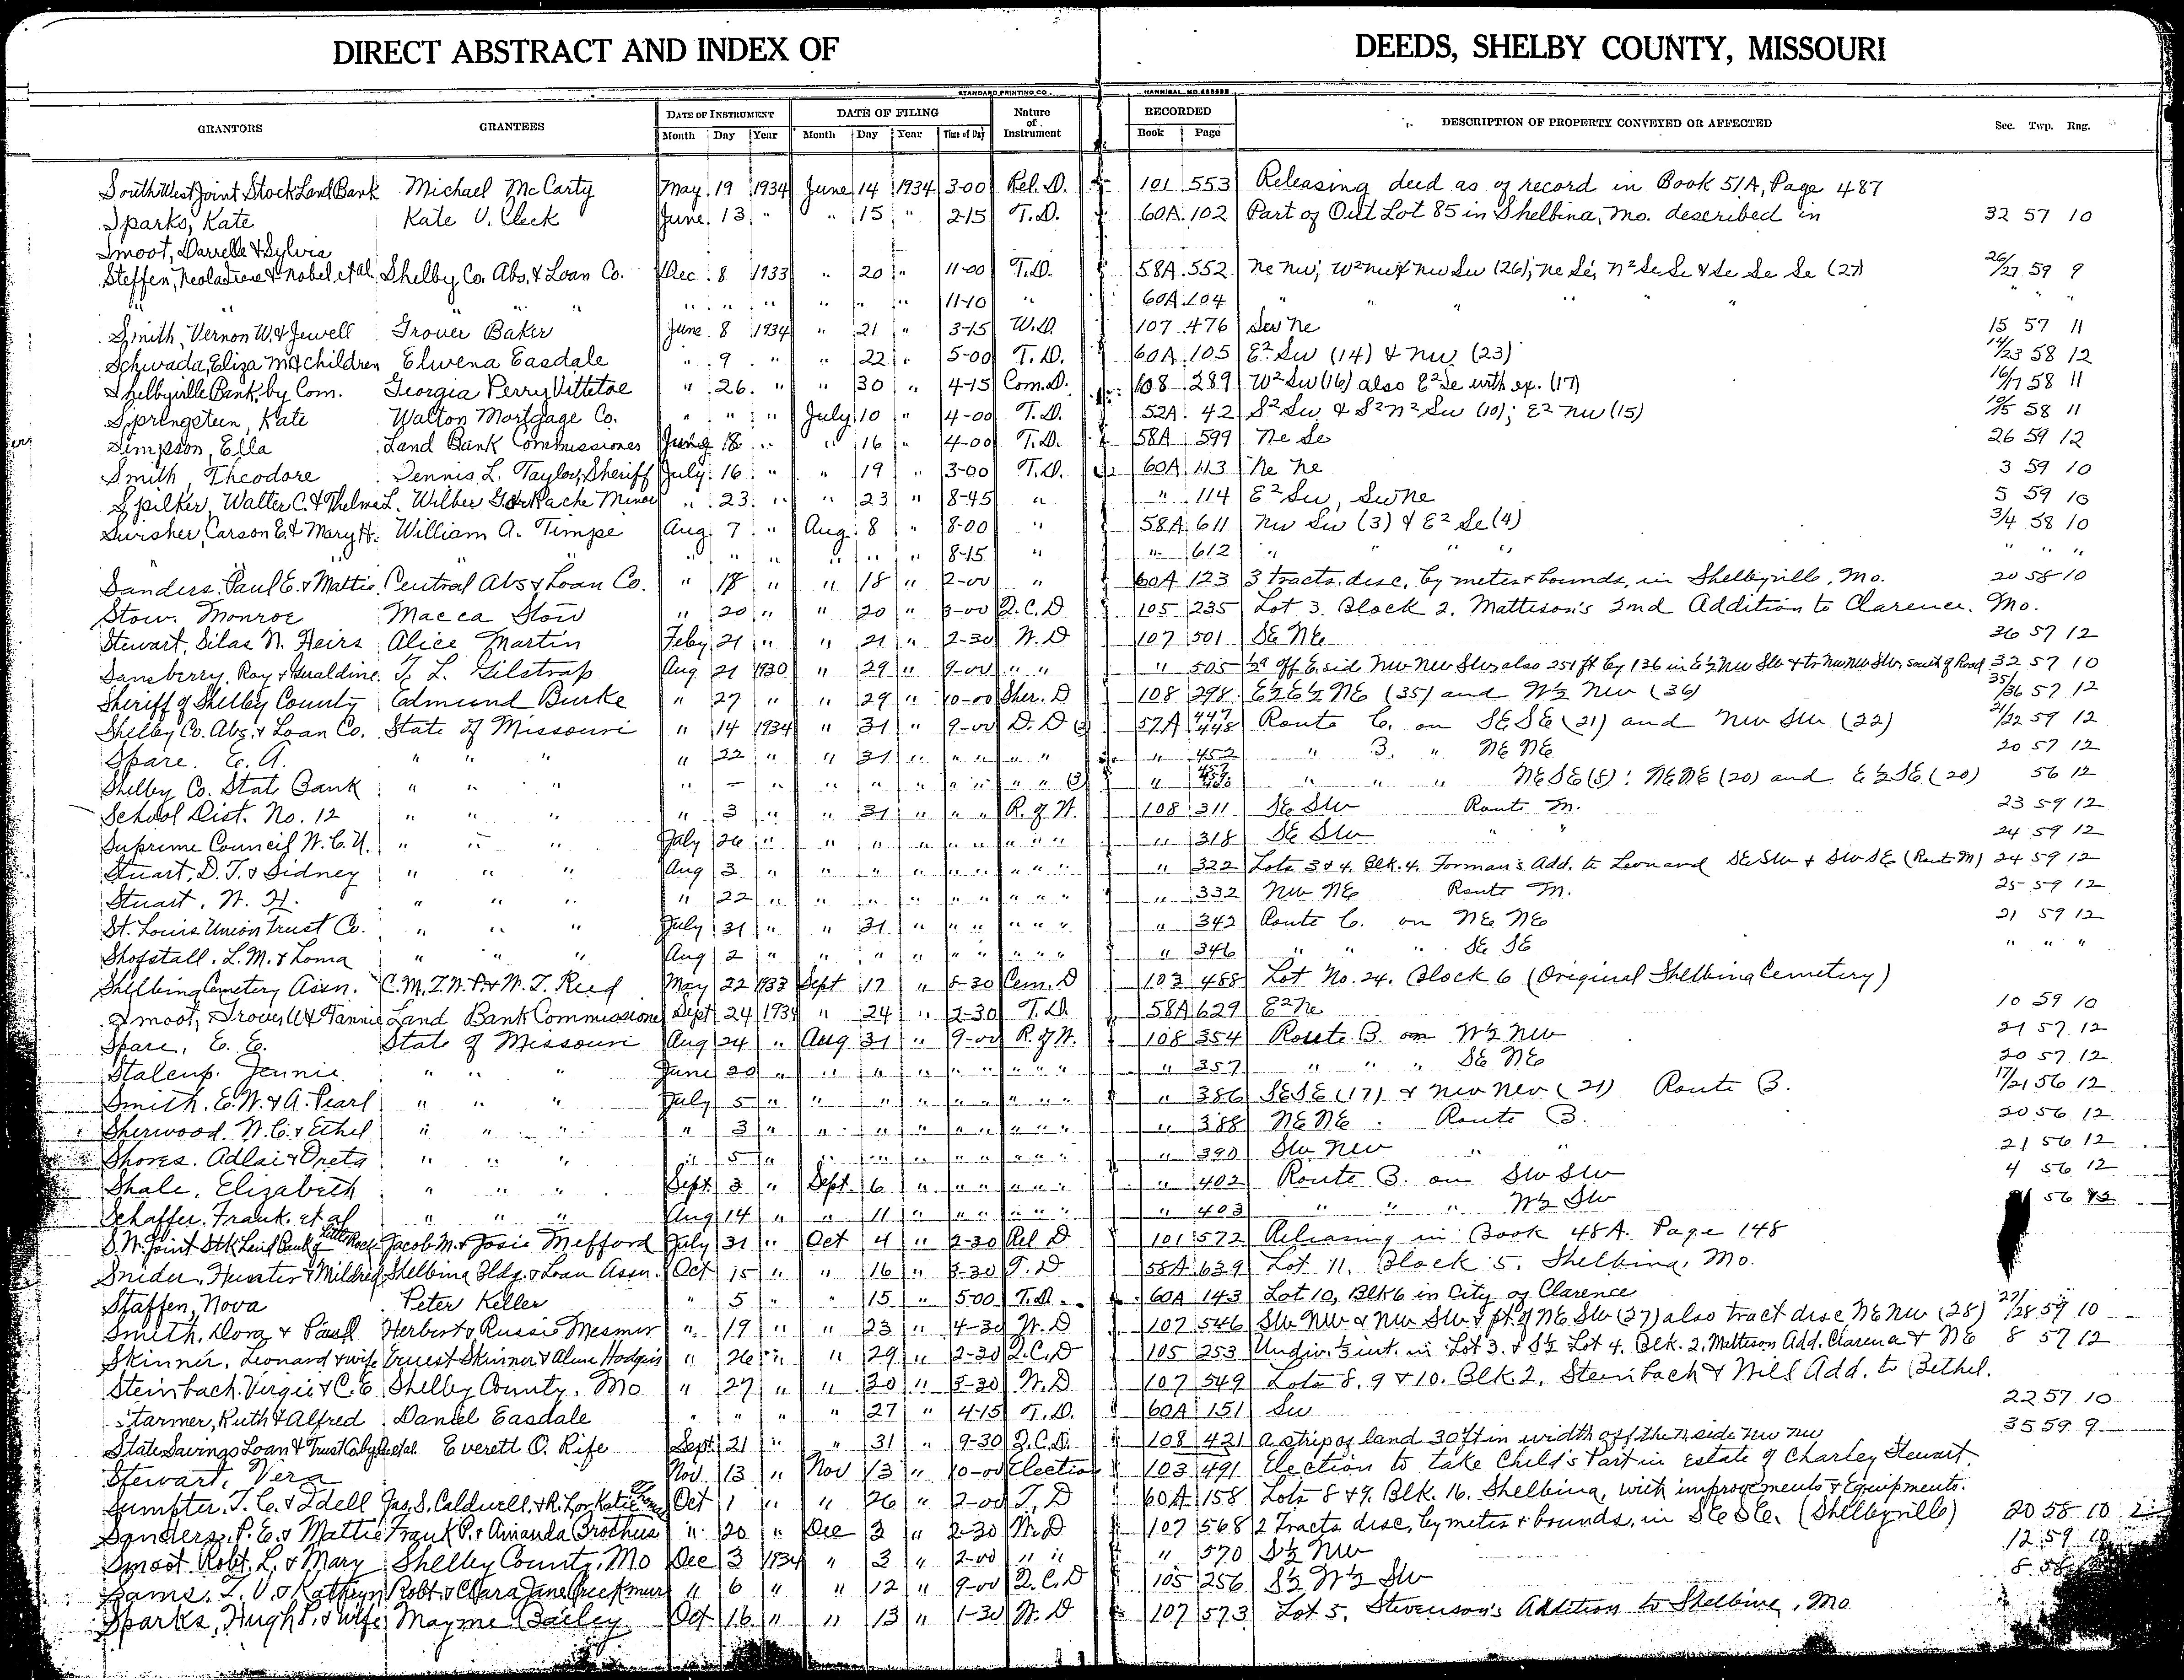 DIRECT ABSTRACT AND INDEX OF DEEDS, SHELBY COUNTY, MISSOURI
STANDARD PRINTING CO. HANNIBAL, MO
GRANTORS GRANTEES DATE OF INSTRUMENT DATE OF FILING Nature of Instrument RECORDED DESCRIPTION OF PROPERTY CONVEYED OR AFFECTED Sec. Twp. Rng.
Month Day Year Month Day Year Time of Day Book Page
SouthWest Joint Stock Land Bank Michael McCarty May 19 1934 June 14 1934 3-00 Rel. D. 101 553 Releasing deed as of record in Book 51A, Page 487
Sparks, Kate Kate V. Cleek June 13 " " 15 " 2-15 T.D. 60A 102 Part of Out Lot 85 in Shelbina, Mo. described in 32 57 10
Smoot, Darrelle & Sylvia
Steffen, & Nobel, et al. Shelby Co. Abs. & Loan Co. Dec 8 1933 " 20 " 11-00 T.D. 58A 552 Ne Nw; W² Nw & Nw Sw (26); Ne Se; N² Se Se & Se Se Se (27) 26/27 59 9
" " " " " " " " " 11-10 " 60A 104 " " " " " " " "
Smith, Vernon W. & Jewell Grover Baker June 8 1934 " 21 " 3-15 W.D. 107 476 Sw Ne 15 57 11
Schwada, Eliza M & Children Elwena Easdale " 9 " " 22 " 5-00 T.D. 60A 105 E² Sw (14) & Nw (23) 14/23 58 12
Shelbyville Bank, by Com. Georgia Perry Vittetoe " 26 " " 30 " 4-15 Com. D. 108 289 W² Sw (16) also E² Se with ex. (17) 16/17 58 11
Springsteen, Kate Walton Mortgage Co. " " " July 10 " 4-00 T.D. 52A 42 S² Sw & S² N² Sw (10); E² Nw (15) 10/15 58 11
Simpson, Ella Land Bank Commissioner June 8 " " 16 " 4-00 T.D. 58A 599 Ne Se 26 59 12
Smith, Theodore Dennis L. Taylor, Sheriff July 16 " " 19 " 3-00 T.D. 60A 113 Ne Ne 3 59 10
Spilker, Walter C. & Thelma L. Wilber Minor " 23 " " 23 " 8-45 " " 114 E² Sw, Sw Ne 5 59 10
Swisher, Carson E. & Mary H. William A. Timpe Aug 7 " Aug 8 " 8-00 " 58A 611 Nw Sw (3) & E² Se (4) 3/4 58 10
" " " " " " " " 8-15 " " 612 " " " " " " "
Sanders, Paul E. & Mattie Central Abs & Loan Co. " 18 " " 18 " 2-00 " 60A 123 3 tracts desc. by metes & bounds, in Shelbyville, Mo. 20 58 10
Stow, Monroe Macca Stow " 20 " " 20 " 3-00 Q.C.D 105 235 Lot 3. Block 2. Mattison's 2nd Addition to Clarence, Mo.
Stewart, Silas N. Heirs Alice Martin Feby 21 " " 21 " 2-30 W.D 107 501 SE NE 36 57 12
Sansberry, Ray & Geraldine T. L. Gilstrap Aug 21 1930 " 29 " 9-00 " " " 505 off E. side Nw Nw Sw, also 251 ft by 136 in E½ Nw Sw & to Nw Nw Sw, south of Road 32 57 10
Sheriff of Shelby County Edmund Burke " 27 " " 29 " 10-00 Sher. D 108 298 E½ E½ NE (35) and W½ Nw (36) 35/36 57 12
Shelby Co. Abs. & Loan Co. State of Missouri " 14 1934 " 31 " 9-00 D.D (2) 57A 447 448 Route C. on SE SE (21) and Nw Sw (22) 21/22 59 12
Spare. E. A. " " " " 22 " " 31 " " " " " " 452 " B. " NE NE 20 57 12
Shelby Co. State Bank " " " " - " " " " " " " " (3) " " " " NE SE (8): NE NE (20) and E½ SE (20) 56 12
School Dist. No. 12 " " " " 3 " " 31 " " " R. of W. 108 311 SE Sw Route M. 23 59 12
Supreme Council W.C.U. " " " July 26 " " " " " " " " " " 318 SE Sw " " 24 59 12
Stuart, D. T. & Sidney " " " Aug 3 " " " " " " " " " " 322 Lots 3 & 4. Blk. 4. Forman's Add. to Leonard SE Sw & Sw SE (Route M) 24 59 12
Stuart, W. H. " " " " 22 " " " " " " " " " " 332 Nw NE Route M. 25 59 12
St. Louis Union Trust Co. " " " July 31 " " 31 " " " " " " " 342 Route C. on NE NE 21 59 12
Shofstall, L. M. & Loma " " " Aug 2 " " " " " " " " " " 346 " " " SE SE " " "
Shelbina Cemetery Assn. C. M. & W. T. Reed May 22 1933 Sept 17 " 8-30 Cem. D 103 488 Lot No. 24. Block 6 (Original Shelbina Cemetery)
Smoot, Grover W & Fannie Land Bank Commissioner Sept 24 1934 " 24 " 2-30 T.D. 58A 629 E² Ne 10 59 10
Spare, E. E. State of Missouri Aug 24 " Aug 31 " 9-00 R. of W. 108 354 Route B. on W½ Nw 21 57 12
Stalcup, Jennie " " " June 20 " " " " " " " " " " 357 " " " SE NE 20 57 12
Smith, E. W. & A. Pearl " " " July 5 " " " " " " " " " " 386 SE SE (17) & Nw Nw (21) Route B. 17/21 56 12
Sherwood, W. C. & Ethel " " " " 3 " " " " " " " " " " 388 NE NE Route B. 20 56 12
Shores. Adlai & Oreta " " " " 5 " " " " " " " " " " 390 Sw Nw " " 21 56 12
Shale, Elizabeth " " " Sept 3 " Sept 6 " " " " " " " 402 Route B. on Sw Sw 4 56 12
Schaffer, Frank, et al " " " Aug 14 " " 11 " " " " " " " 403 " " " W½ Sw 56 12
S.W. Joint Stk Land Bank of Little Rock Jacob M. & Josie Mefford July 31 " Oct 4 " 2-30 Rel D 101 572 Releasing in Book 48A. Page 148
Snider, Hunter & Mildred Shelbina Bldg. & Loan Assn. Oct 15 " " 16 " 8-30 T.D 58A 639 Lot 11. Block 5. Shelbina, Mo.
Staffen, Nova Peter Keller " 5 " " 15 " 5-00 T.D. 60A 143 Lot 10, Blk 6 in City of Clarence
Smith, Dora & Paul Herbert & Russie Mesmer " 19 " " 23 " 4-30 W.D 107 546 Sw Nw & Nw Sw & pt. of NE Sw (27) also tract disc NE Nw (28) 27/28 59 10
Skinner, Leonard & wife Ernest Skinner & Alene Hodges " 26 " " 29 " 2-30 Q.C.D 105 253 Undiv. ⅓ int. in Lot 3. & S½ Lot 4. Blk. 2. Mattison Add. Clarence & NE 8 57 12
Steinbach, Virgie & C.E Shelby County. Mo " 27 " " 30 " 8-30 W.D 107 549 Lots 8, 9 & 10. Blk. 2. Steinbach & Will Add. to Bethel.
Starmer, Ruth & Alfred Daniel Easdale " " " " 27 " 4-15 T.D. 60A 151 Sw 22 57 10
State Savings Loan & Trust Co. Everett O. Rife Sept. 21 " " 31 " 9-30 Q.C.D. 108 421 a strip of land 30 ft in width off the N side Nw Nw 35 59 9
Stewart, Vera Nov. 13 " Nov 13 " 10-00 Election 103 491 Election to take Child's Part in Estate of Charley Stewart.
Sumpter, T. C. & Idell Jas. S. Caldwell, & R. Katie Oct 1 " " 26 " 2-00 T.D 60A 158 Lots 8 & 9. Blk. 16. Shelbina, with improvements & Equipments.
Sanders, P. E. & Mattie Frank P. & Amanda Brothers " 20 " Dec 3 " 2-30 W.D 107 568 2 Tracts disc, by metes & bounds, in SE SE. (Shelbyville) 20 58 10
Smoot Robt. L. & Mary Shelby County, Mo Dec 3 1934 " 3 " 2-00 " " " 570 S½ Nw 12 59 10
Sams, T. V. & Kathryn Robt. & Clara Jane Creekmur " 6 " " 12 " 9-00 Q.C.D 105 256 S½ W½ Sw 8 58
Sparks, Hugh T. & wife Mayme Bailey Oct 16 " " 13 " 1-30 W.D 107 573 Lot 5. Stevenson's Addition to Shelbina, Mo